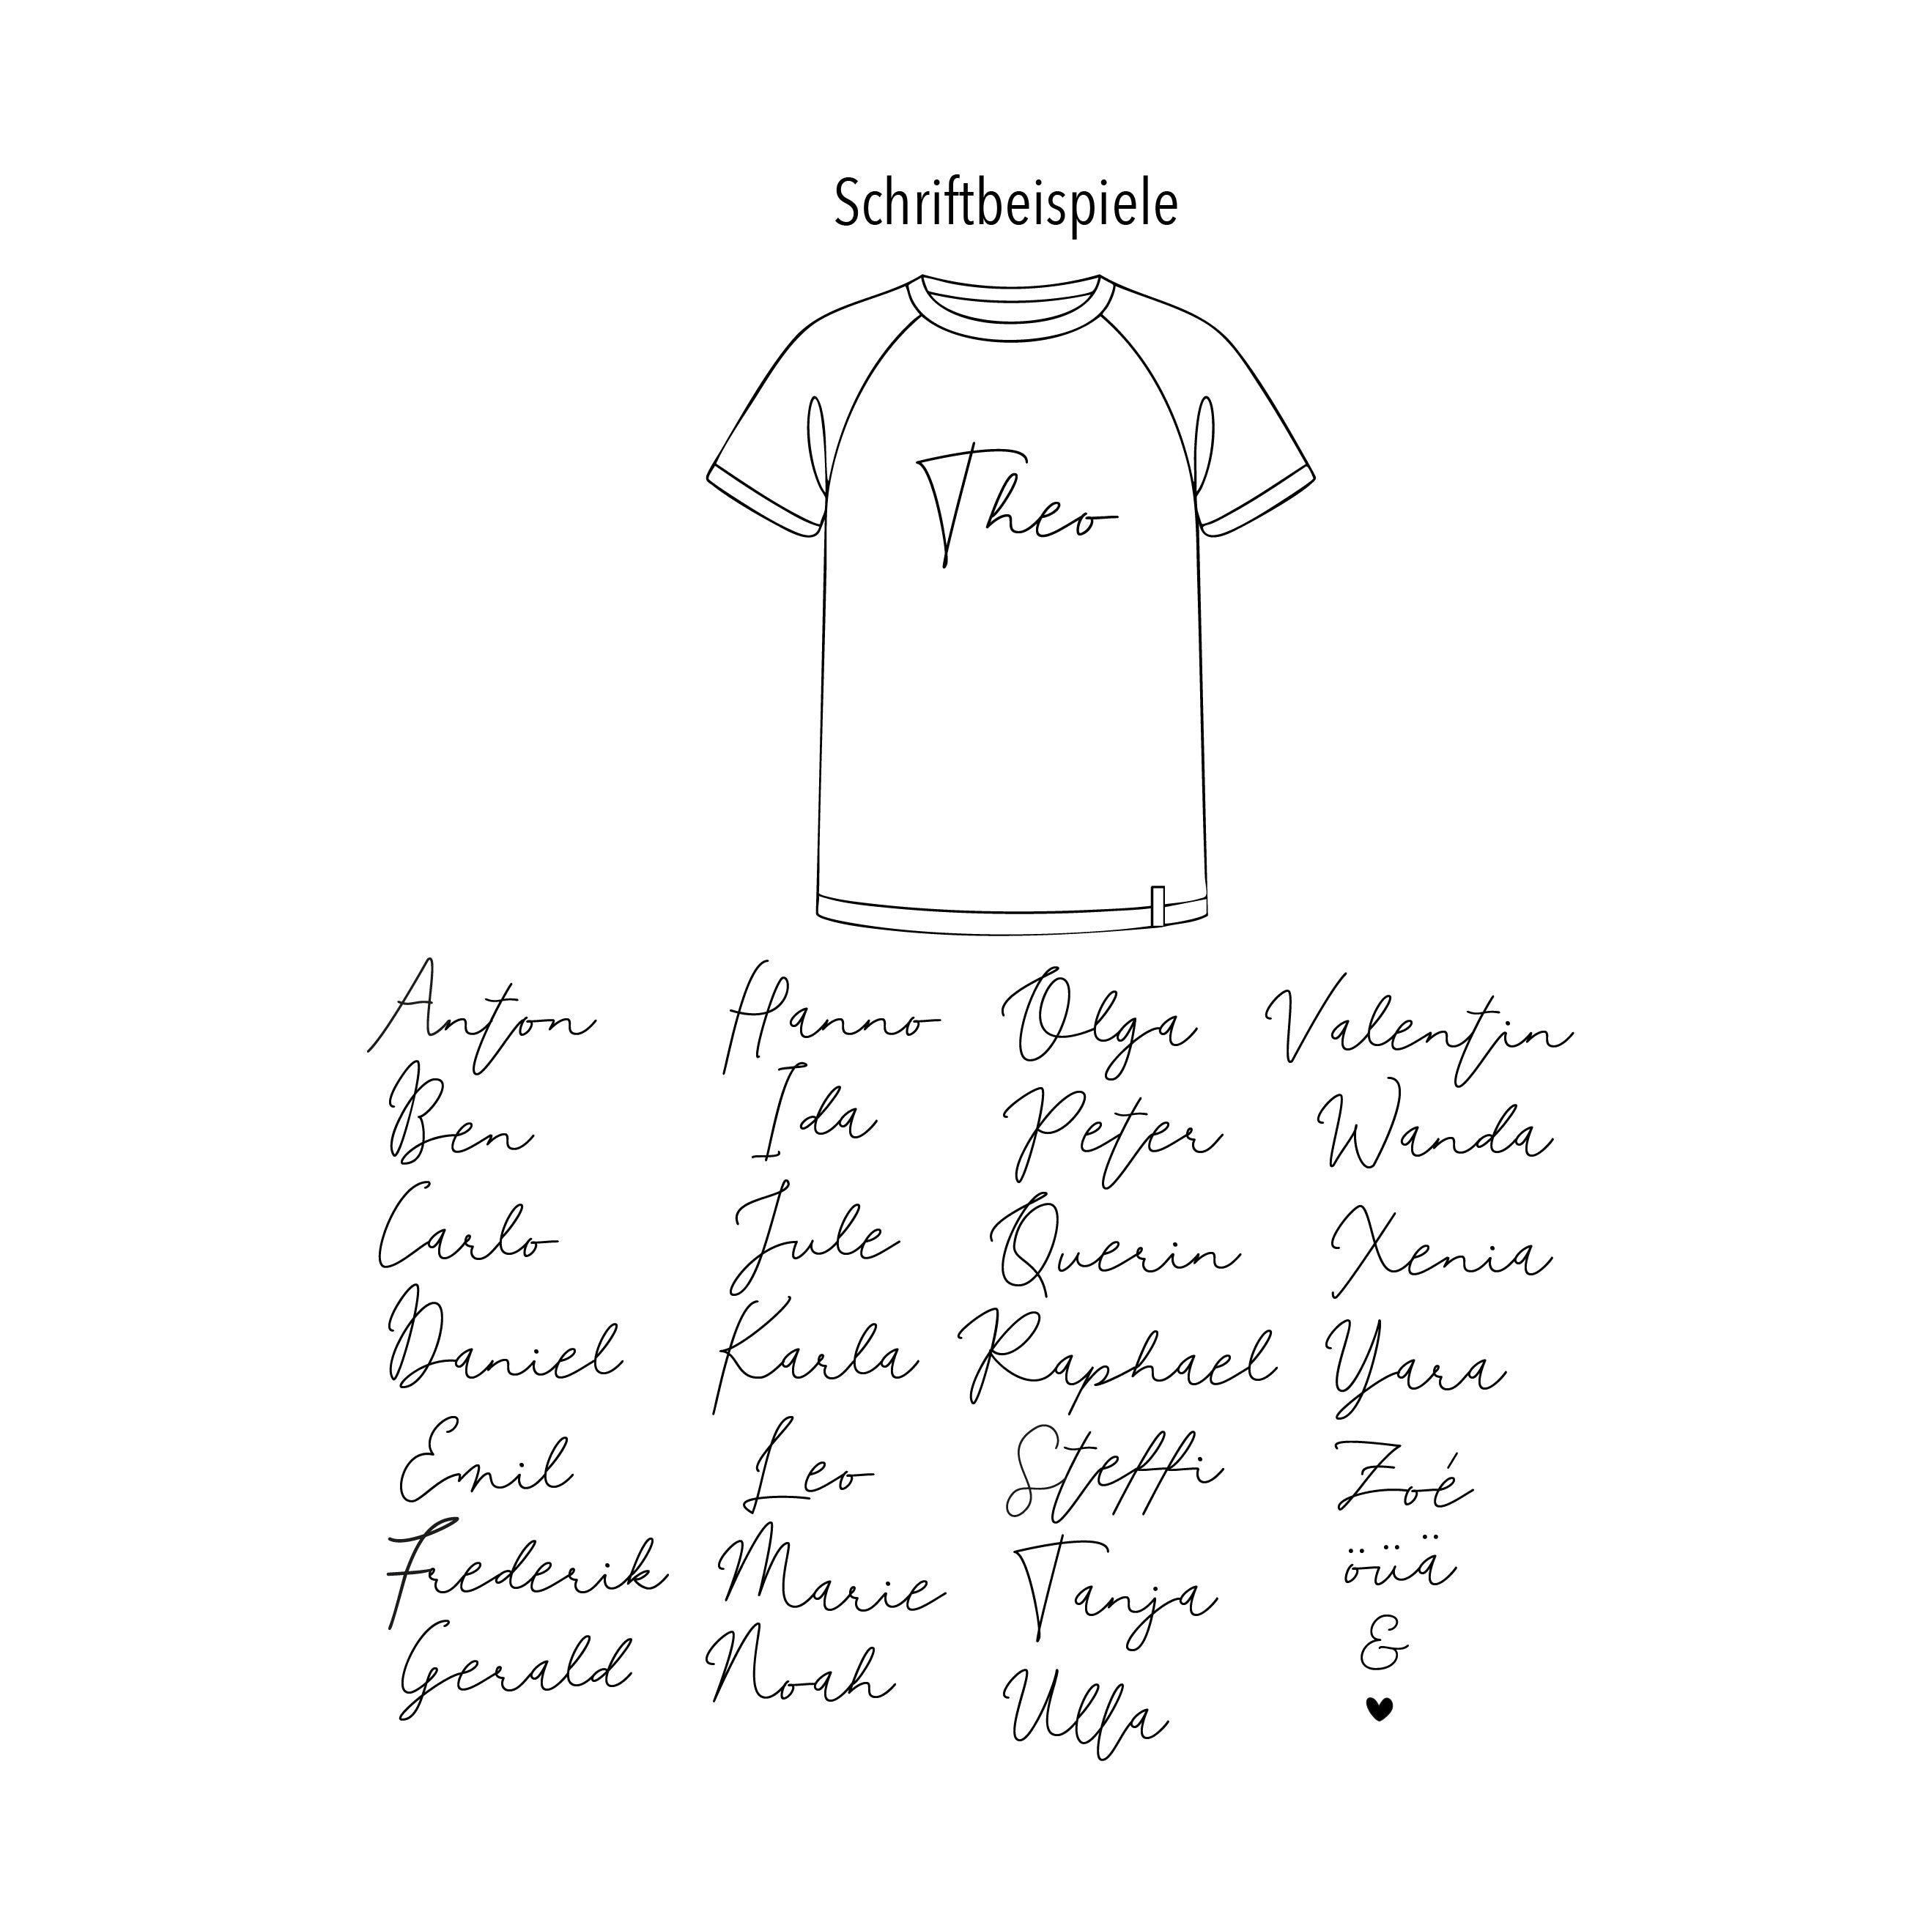 Schriftbeispiele
Theo
Anton
Ben
Carlo
Daniel
Emil
Frederik
Gerald
Hanno
Ida
Jule
Karla
Leo
Marie
Noah
Olga
Peter
Querin
Raphael
Steffi
Tanja
Ulla
Valentin
Wanda
Xenia
Yara
Zoé
öüä
&
♥